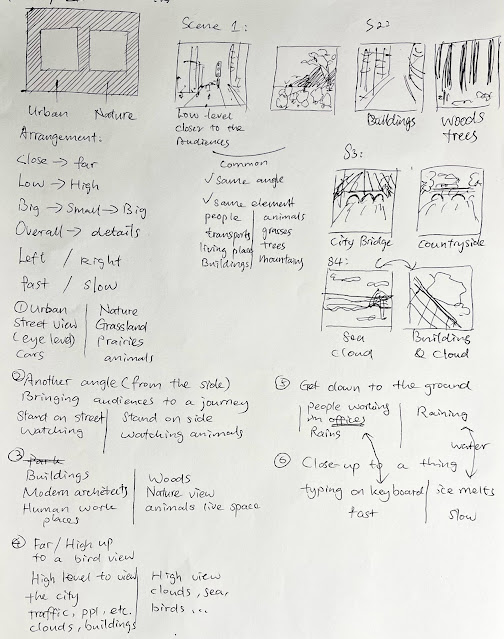 Urban Nature
Arrangement:
Close → far
Low → High
Big → Small → Big
Overall → details
Left / Right
fast / slow
Scene 1:
Low-level
closer to the
audiences
Common
✓ Same angle
✓ Same element
people | animals
transports | grasses
living place | trees
Buildings | mountains
S2:
Buildings
Woods
trees
S3:
City Bridge
Countryside
S4:
Sea
Cloud
Building
& Cloud
① Urban | Nature
Street view | Grassland
(eye level) | Prairies
Cars | animals
② Another angle (from the side)
Bringing audiences to a journey
Stand on street | Stand on side
Watching | watching animals
③ Park
Buildings | Woods
Modern architects | Nature view
Human work | animals live space
places
④ Far / High up
to a bird view
High level to view | High view
the city | clouds, sea,
traffic, ppl, etc. | birds ...
clouds, buildings
⑤ Get down to the ground
people working | Raining
in offices
Rains
water
⑥ Close-up to a thing
typing on keyboard | ice melts
fast | slow